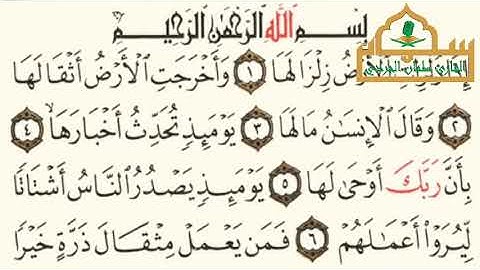 بِسْمِ اللَّهِ الرَّحْمَٰنِ الرَّحِيمِ
زِلْزَالَهَا ١ وَأَخْرَجَتِ الْأَرْضُ أَثْقَالَهَا
٢ وَقَالَ الْإِنسَانُ مَا لَهَا ٣ يَوْمَئِذٍ تُحَدِّثُ أَخْبَارَهَا ٤
بِأَنَّ رَبَّكَ أَوْحَىٰ لَهَا ٥ يَوْمَئِذٍ يَصْدُرُ النَّاسُ أَشْتَاتًا
لِّيُرَوْا أَعْمَالَهُمْ ٦ فَمَن يَعْمَلْ مِثْقَالَ ذَرَّةٍ خَيْرًا